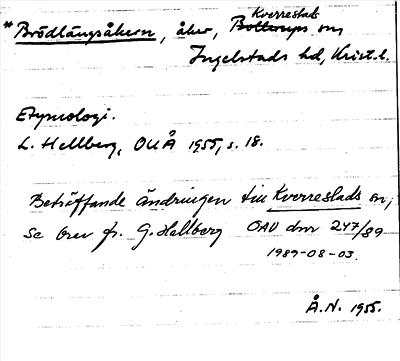 Kverrestads
* Brödlängsåkern, åker, Bollerups sn
Ingelstads hd, Krist. l.
Etymologi.
L. Hellberg, OUÅ 1955, s. 18.
Beträffande ändringen till Kverrestads sn,
se brev fr. G. Hallberg OAU dnr 247/89
1989-08-03.
Å.N. 1955.